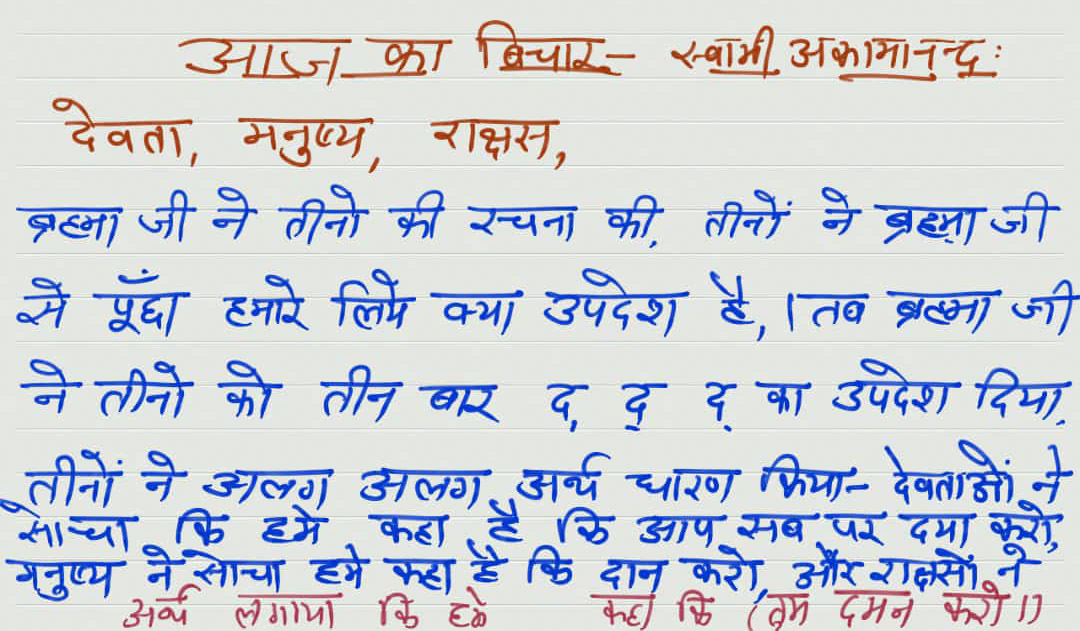 आज का विचार - स्वामी अकामानन्द:
देवता, मनुष्य, राक्षस,
ब्रह्मा जी ने तीनो की रचना की, तीनों ने ब्रह्मा जी
से पूँछा हमारे लिये क्या उपदेश है, । तब ब्रह्मा जी
ने तीनो को तीन बार द, द् द् का उपदेश दिया,
तीनों ने अलग अलग अर्थ धारण किया - देवताओं ने
सोचा कि हमे कहा है कि आप सब पर दया करो,
मनुष्य ने सोचा हमे कहा है कि दान करो, और राक्षसों ने
अर्थ लगाया कि हमे कहा कि (तुम दमन करो।)